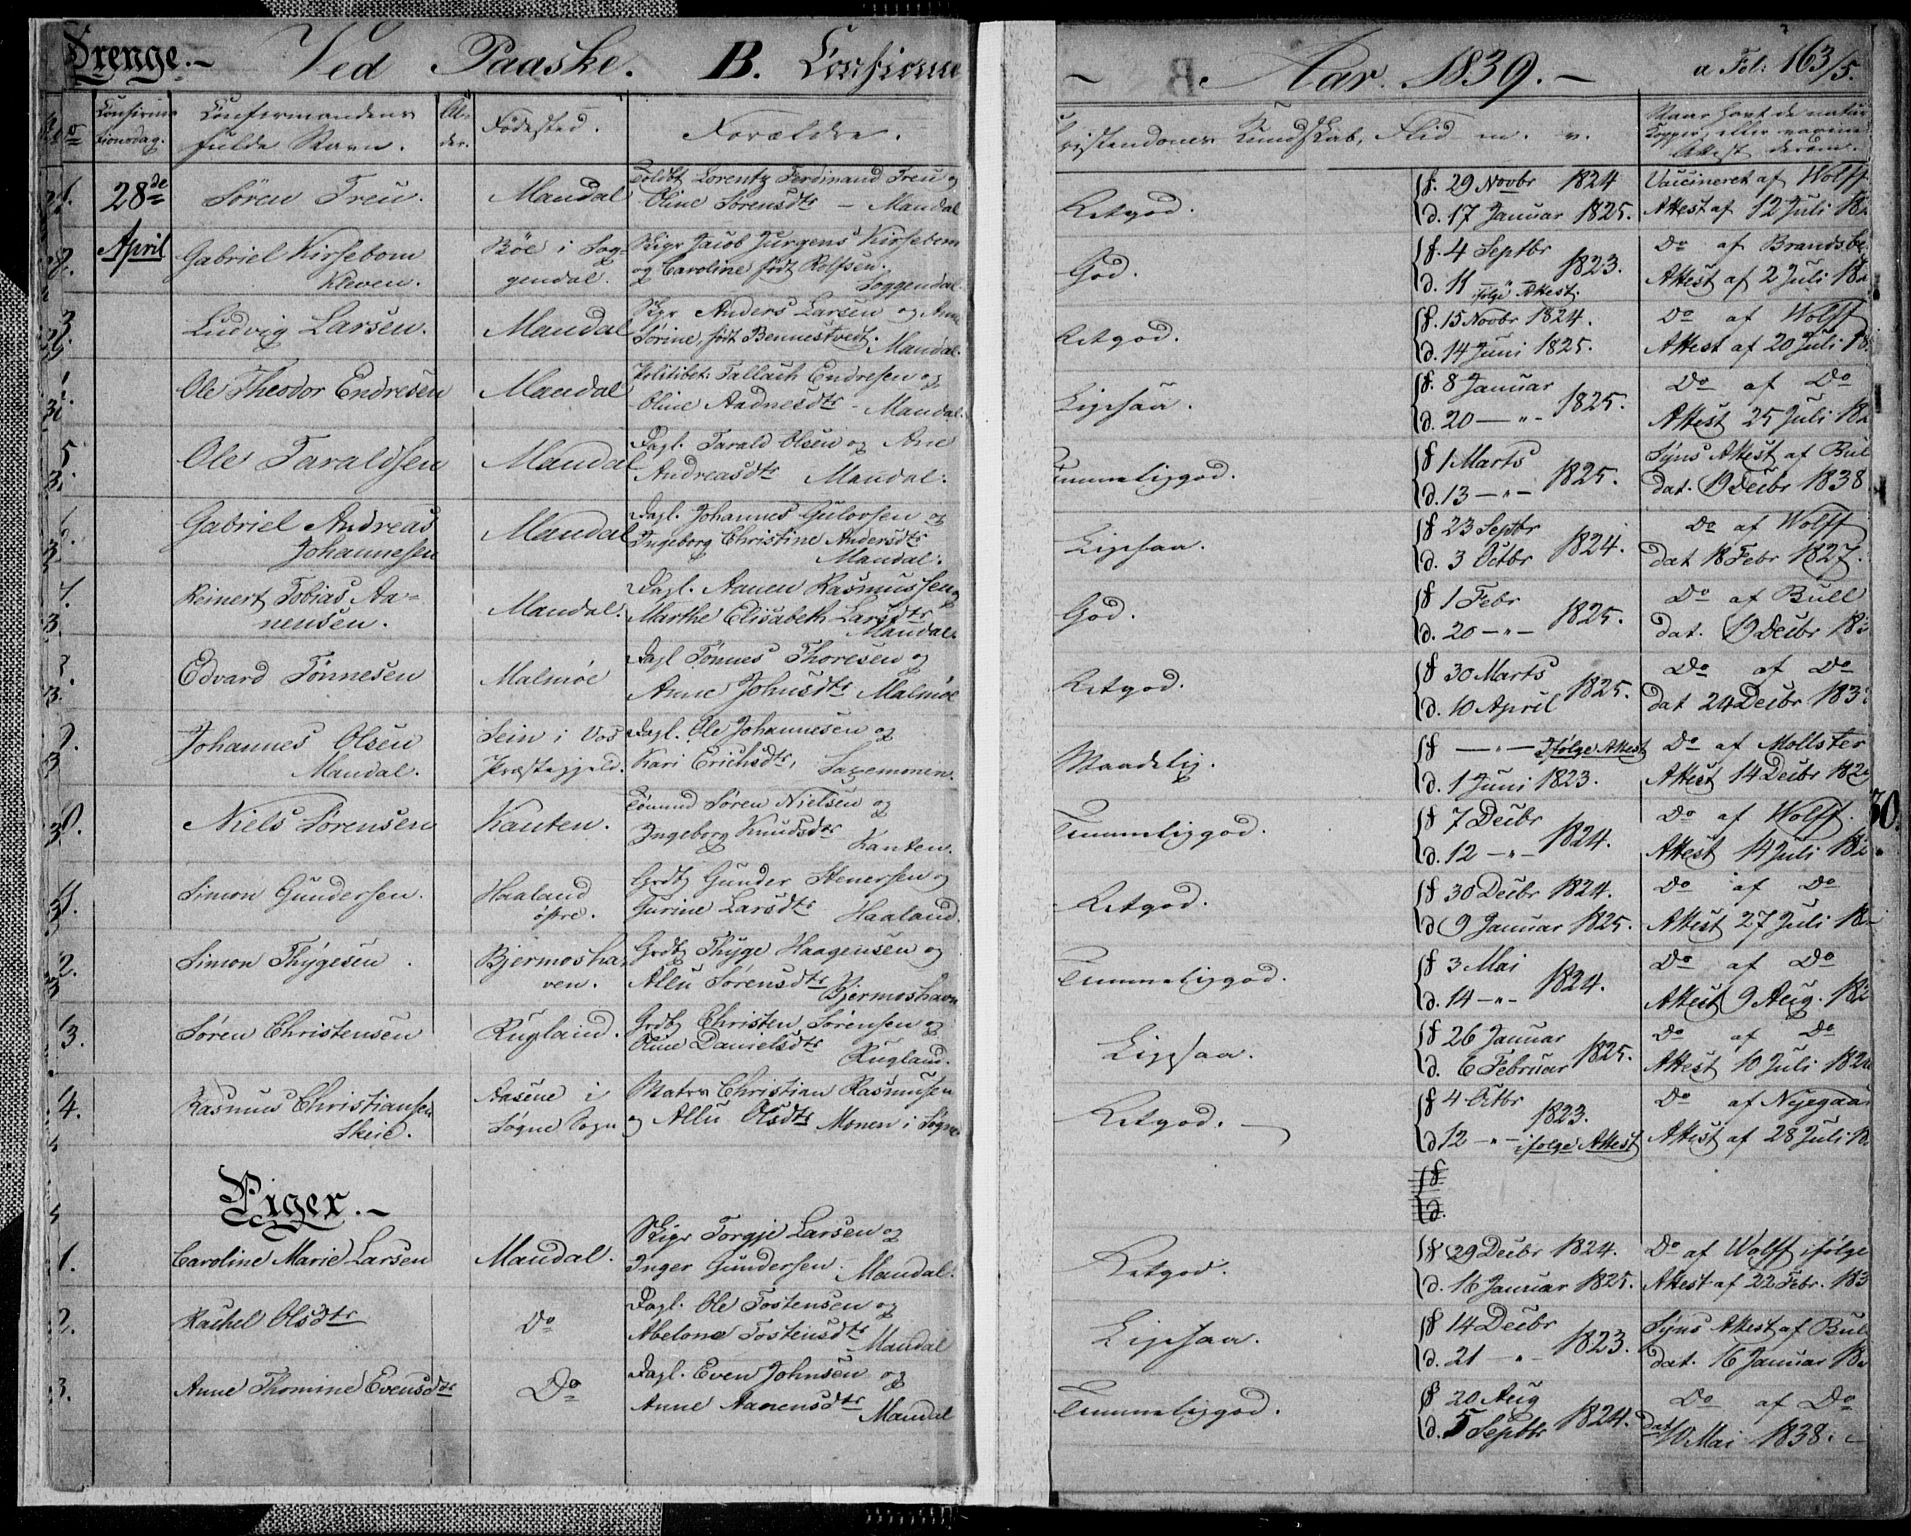 Drenge.-
Ved Paaske. B. Confirme
Aar. 1839.-
a Fol: 163/5.
No
Confirmations dag.
Confirmandens fulde Navn.
Alder.
Fødested.
Forældre.
Christendoms Kundskab, Flid m. v.
Naar havt de natur
Kopper, eller vaccine
Attest derom.
1. 28de April
Søren Treu.
Mandal
Toldbt Lorentz Ferdinand Treu og
Oline Sørensdtr - Mandal
Retgod.
f. 29 Novbr 1824
d. 17 Januar 1825.
Vaccineret af Wolff
Attest af 12 Juli 18
2.
Gabriel Kirsebom
Kleven.
Bøe i Sog-
gendal.
Skpr Jacob Jurgens Kirsebom
og Caroline født Rolfsen.
Soggendal.
God.
f. 4 Septbr
d. 11 1823.
ifølge Attest.
Do af Brandsbe
Attest af 2 Juli 18
3.
Ludvig Larsen.
Mandal
Skpr Anders Larsen og Anne
Sørine, født Bennestvedt. Mandal.
Retgod.
f. 15 Novbr 1824.
d. 14 Juni 1825.
Do af Wolff
Attest af 20 Juli 18
Ole Theodor Endresen
Mandal
Politibet: Tallach Endresen og
Oline Aadnesdtr - Mandal.
Ligesaa.
f. 8 Januar
d. 20 — " - 1825.
Do af Do
Attest 25 Juli 18
5
Ole Taraldsen
Mandal
Dagl. Tarald Olsen og Ane
Andreasdtr Mandal.
Temmeliggod.
f 1 Marts
d. 13 — " - 1825.
Syns Attest af Bul
dat. 19 Decbr 1838
6.
Gabriel Andreas
Johannesen
Mandal
Dagl. Johannes Gulovsen og
Ingeborg Christine Andersdtr
Mandal.
Ligesaa.
f 23 Septbr
d. 3 Octbr 1824.
Do af Wolff
dat 18 Febr 1827.
7.
Reinert Tobias Aa-
nensen.
Mandal.
Dagl. Aanen Rasmussen og
Marthe Elisabeth Larsdtr
Mandal.
God.
f 1 Febr
d. 20 — " - 1825.
Do af Bull
dat. 19 Decbr 18
Edvard Tønnesen
Malmøe
Dagl Tønnes Thoresen og
Anne Johnsdtr Malmøe
Retgod.
f 30 Marts
d. 10 April 1825.
Do af Do
dat 24 Decbr 183
9.
Johannes Olsen
Mandal.
Sein i Vos
Præstegjeld.
Dagl. Ole Johannesen og
Kari Erichsdtr,
Maadelig.
f — " — Ifølge Attest
d. 1 Juni 1823.
Do af Mollster
Attest 14 Decbr 182
Niels Sørensen
Kanten.
Tømmd Søren Nielsen og
Ingeborg Knudsdtr
Kanten.
Temmeliggod.
f 7 Decbr
d. 12 — " - 1824.
Do af Wolff.
Attest 14 Juli 18
30.
Simon Gundersen.
Haaland
øfre.
Grdb Gunder Stenersen og
Gurine Larsdtr Haaland.
Retgod.
f 30 Decbr 1824.
d 9 Januar 1825.
Do af Do
Attest 27 Juli 18
2.
Simon Thygesen
Bjermosha-
ven.
Grdb Thyge Haagensen og
Allu Sørensdtr Bjermoshavn
Temmeliggod.
f 3 Mai
d. 14 — " - 1824.
Do af Do
Attest 9 Aug. 18
3.
Søren Christensen
Rugland.
Grdb Christen Sørensen og
Oline Danielsdtr Rugland.
Ligesaa.
f 26 Januar
d. 6 Februar 1825.
Do af Do
Attest 10 Juli 182
4.
Rasmus Christiansen
Skeie.
Aasene i
Søgne Sogn
Matrs Christian Rasmusen
og Allu Olsdtr Monen i Søgne
Retgod.
f 4 Octbr
d 12 — " - 1823.
ifølge Attest
Do af Nyegaa
Attest af 28 Juli 18
Piger.-
f
d.
1.
Caroline Marie Larsen
Mandal.
Skpr Torgje Larsen og
Inger Gundersen. Mandal.
Retgod.
f 29 Decbr 1824.
d. 16 Januar 1825.
Do af Wolff ifølge
Attest af 22 Febr. 183
2.
Rachel Olsdtr
Do
Dagl. Ole Tostensen og
Abelone Tostensdtr Mandal
Ligesaa.
f 14 Decbr
d. 21 — " - 1823.
Syns Attest af Bul
dat. 16 Januar 18
3.
Anne Thomine Evensdtr
Do
Dagl. Even Johnsen og
Anne Aanensdtr Mandal
Temmeliggod.
f 20 Aug
d. 5 Septbr 1824.
Do af Do
dat 10 Mai 1838.